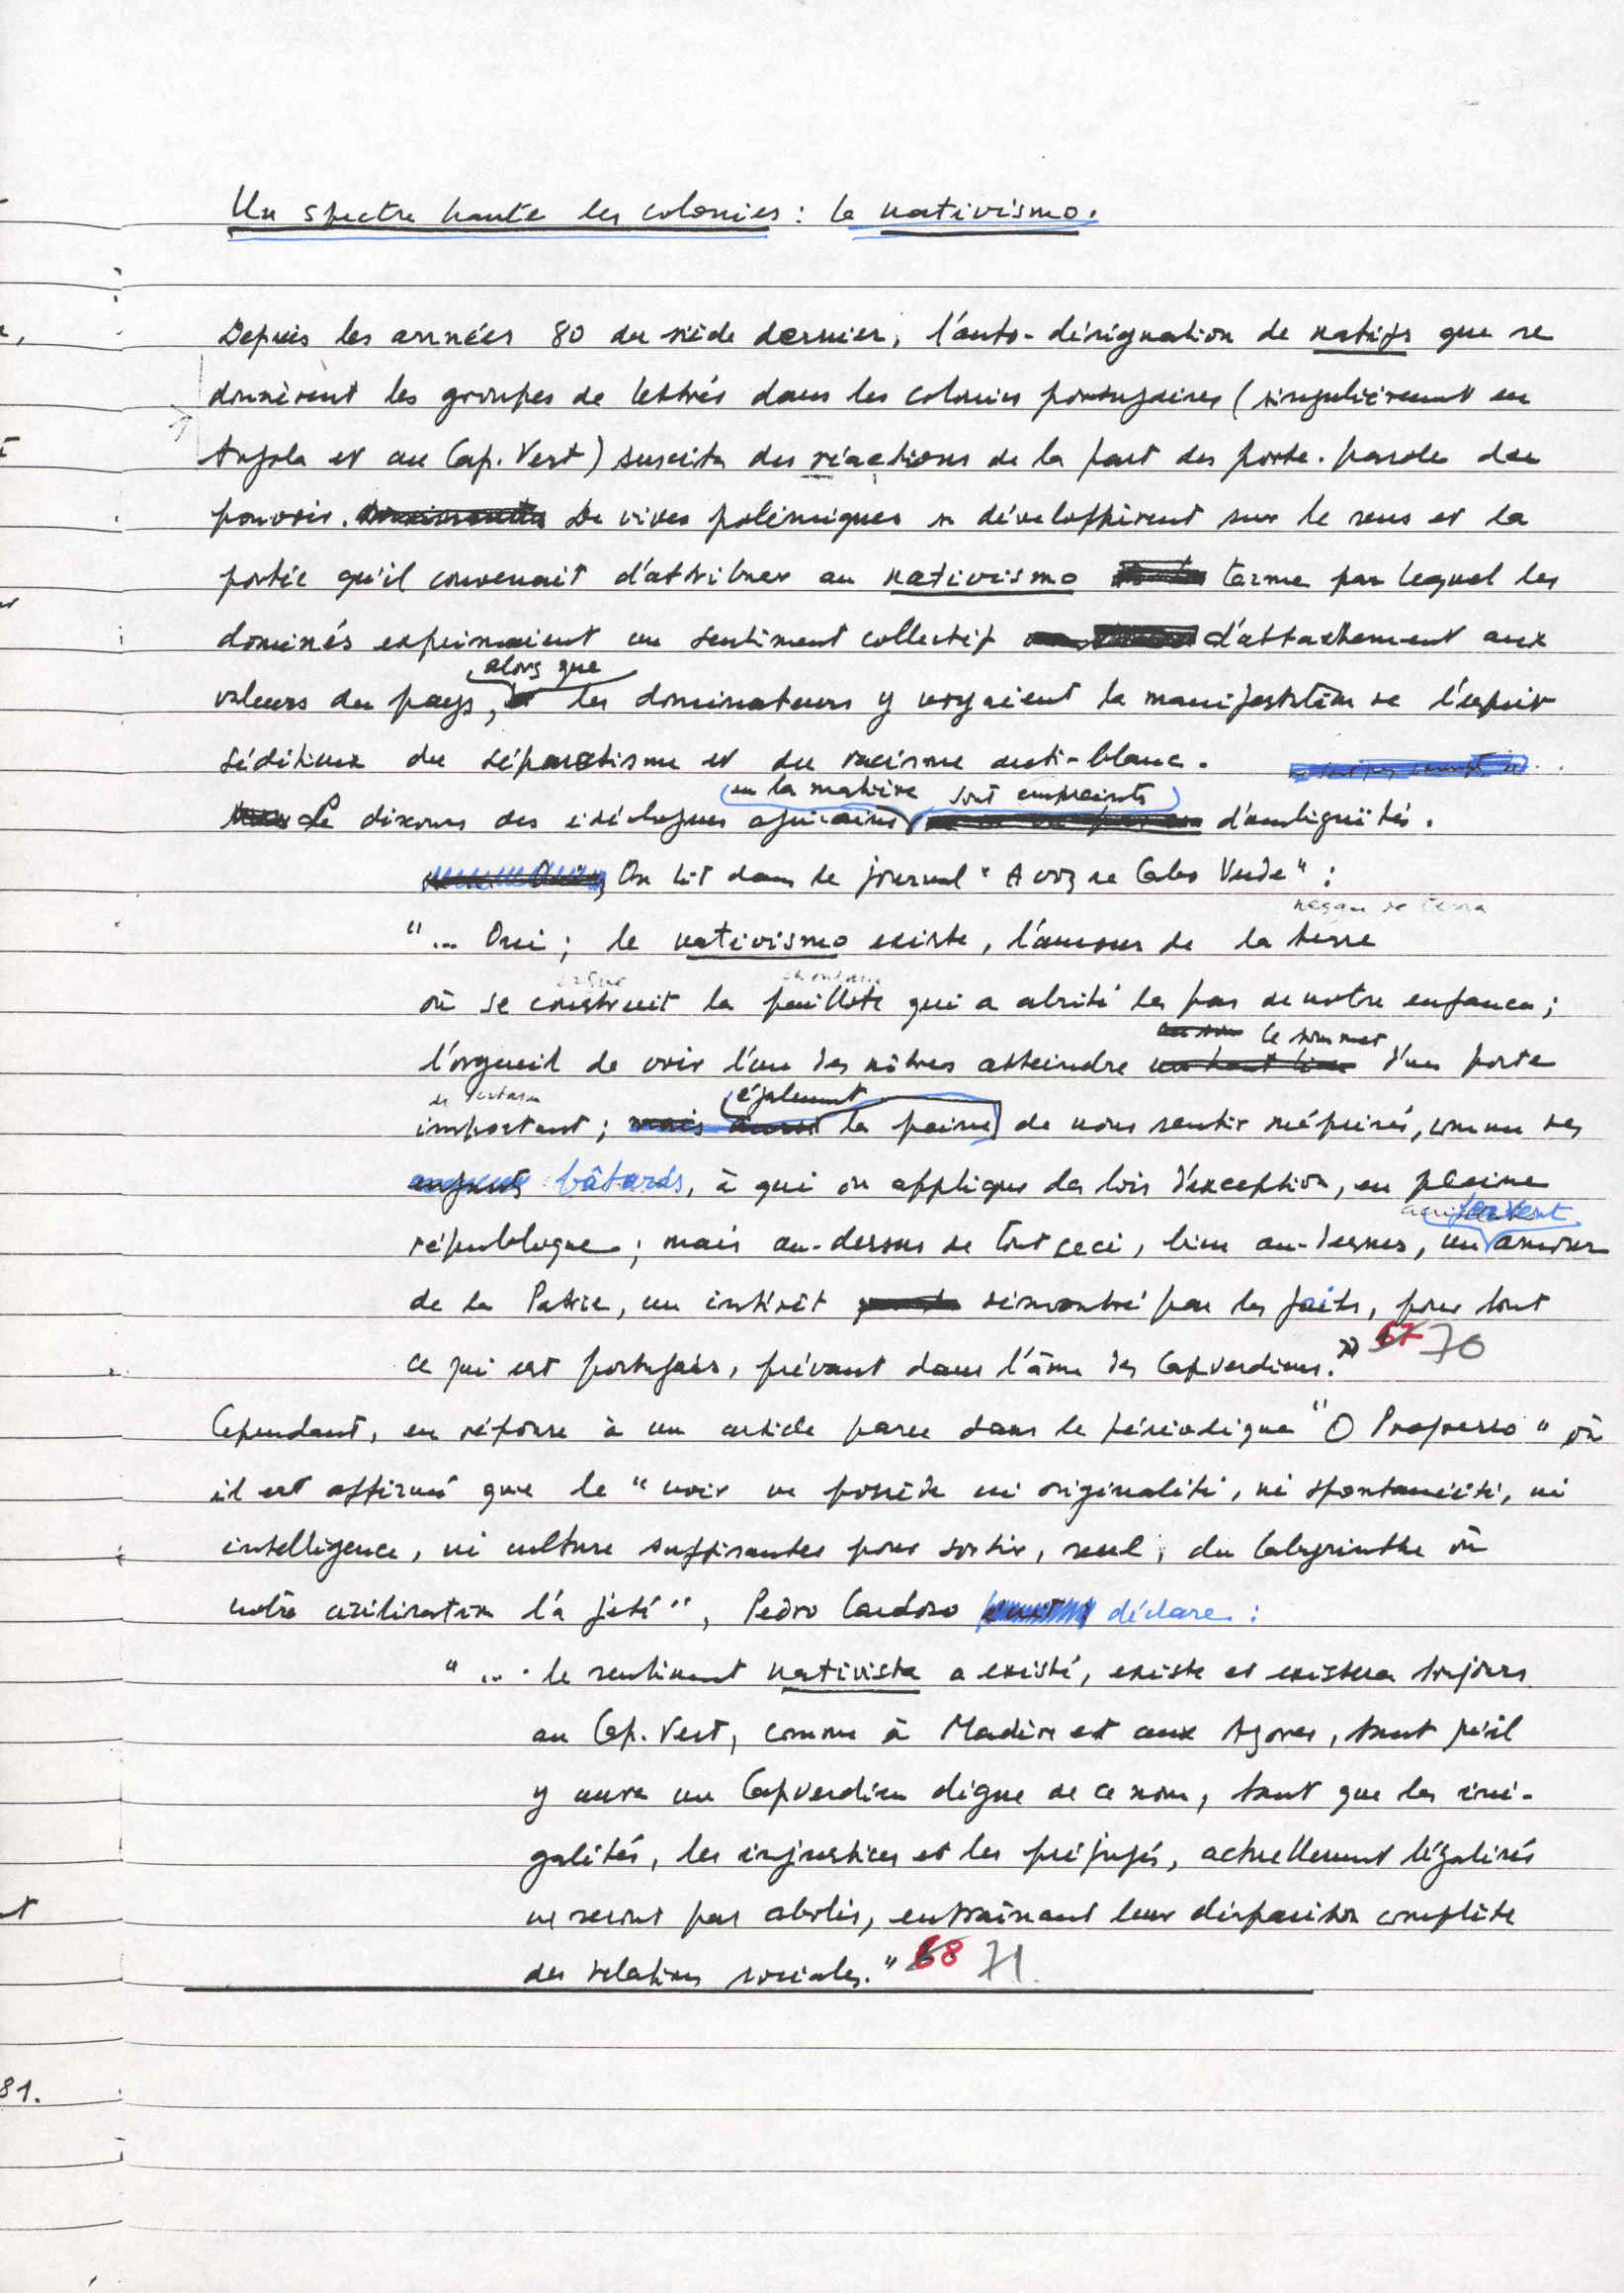 Un spectre hante les colonies : le nativismo.
Depuis les années 80 du siècle dernier, l'auto-désignation de natifs que se
donnèrent les groupes de lettrés dans les colonies portugaises (singulièrement en
Angola et au Cap-Vert) suscita des réactions de la part des porte-parole du
pouvoir. De vives polémiques se développèrent sur le sens et la
portée qu'il convenait d'attribuer au nativismo terme par lequel les
dominés exprimaient un sentiment collectif d'attachement aux
alors que
valeurs du pays, les dominateurs y voyaient la manifestation de l'esprit
séditieux du séparatisme et du racisme anti-blanc.
en la matière sont empreints
Le discours des idéologues africains d'ambiguïtés.
On lit dans le journal "A voz de Cabo Verde" :
"... Oui ; le nativismo existe, l'amour de la terre
où se construit la paillote qui a abrité les pas de notre enfance ;
le sommet
l'orgueil de voir l'un des nôtres atteindre d'un poste
également
important ; mais aussi la peine de nous sentir méprisés, comme des
enfants bâtards, à qui on applique des lois d'exception, en pleine
fervent
république ; mais au-dessus de tout ceci, bien au-dessus, un amour
de la Patrie, un intérêt démontré par les faits, pour tout
ce qui est portugais, prévaut dans l'âme des Capverdiens." 67 70
Cependant, en réponse à un article paru dans le périodique "O Progresso" où
il est affirmé que le "noir ne possède ni originalité, ni spontanéité, ni
intelligence, ni culture suffisantes pour sortir, seul, du labyrinthe où
notre civilisation l'a jeté", Pedro Cardoso écrit déclare :
"... le sentiment nativista a existé, existe et existera toujours
au Cap-Vert, comme à Madère et aux Açores, tant qu'il
y aura un Capverdien digne de ce nom, tant que les iné-
galités, les injustices et les préjugés, actuellement légalisés
ne seront pas abolis, entraînant leur disparition complète
des relations sociales." 68 71
81.